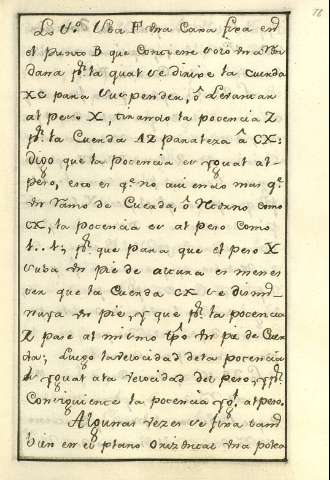 Lo 4.º Sea F una Cana fixa en
el punto B que contiene solo una Ro
dana p.r la qual se dirixe la cuerda
XC para suspender, ô Levantar
al peso X, tirando la potencia Z
p.r la Cuerda AZ paralela â CX:
digo que la potencia es ygual al
peso, esto es q.e no aviendo mas q.e
un Ramo de Cuerda, ô Retorno como
CX, la potencia es al peso como
1..1; p.r que para que el peso X
suba un pie de altura es menes
ter que la Cuerda CX se dismi
nuya un pie, y que p.r la potencia
Z pase al mismo tpô un pie de Cuer
da; Luego la velocidad de la potencia
es ygual a la velocidad del peso, y p.r
Consiguiente la potencia yg.l al peso.
Algunas vezes se fixa tam
bien en el plano Orizontal una polea